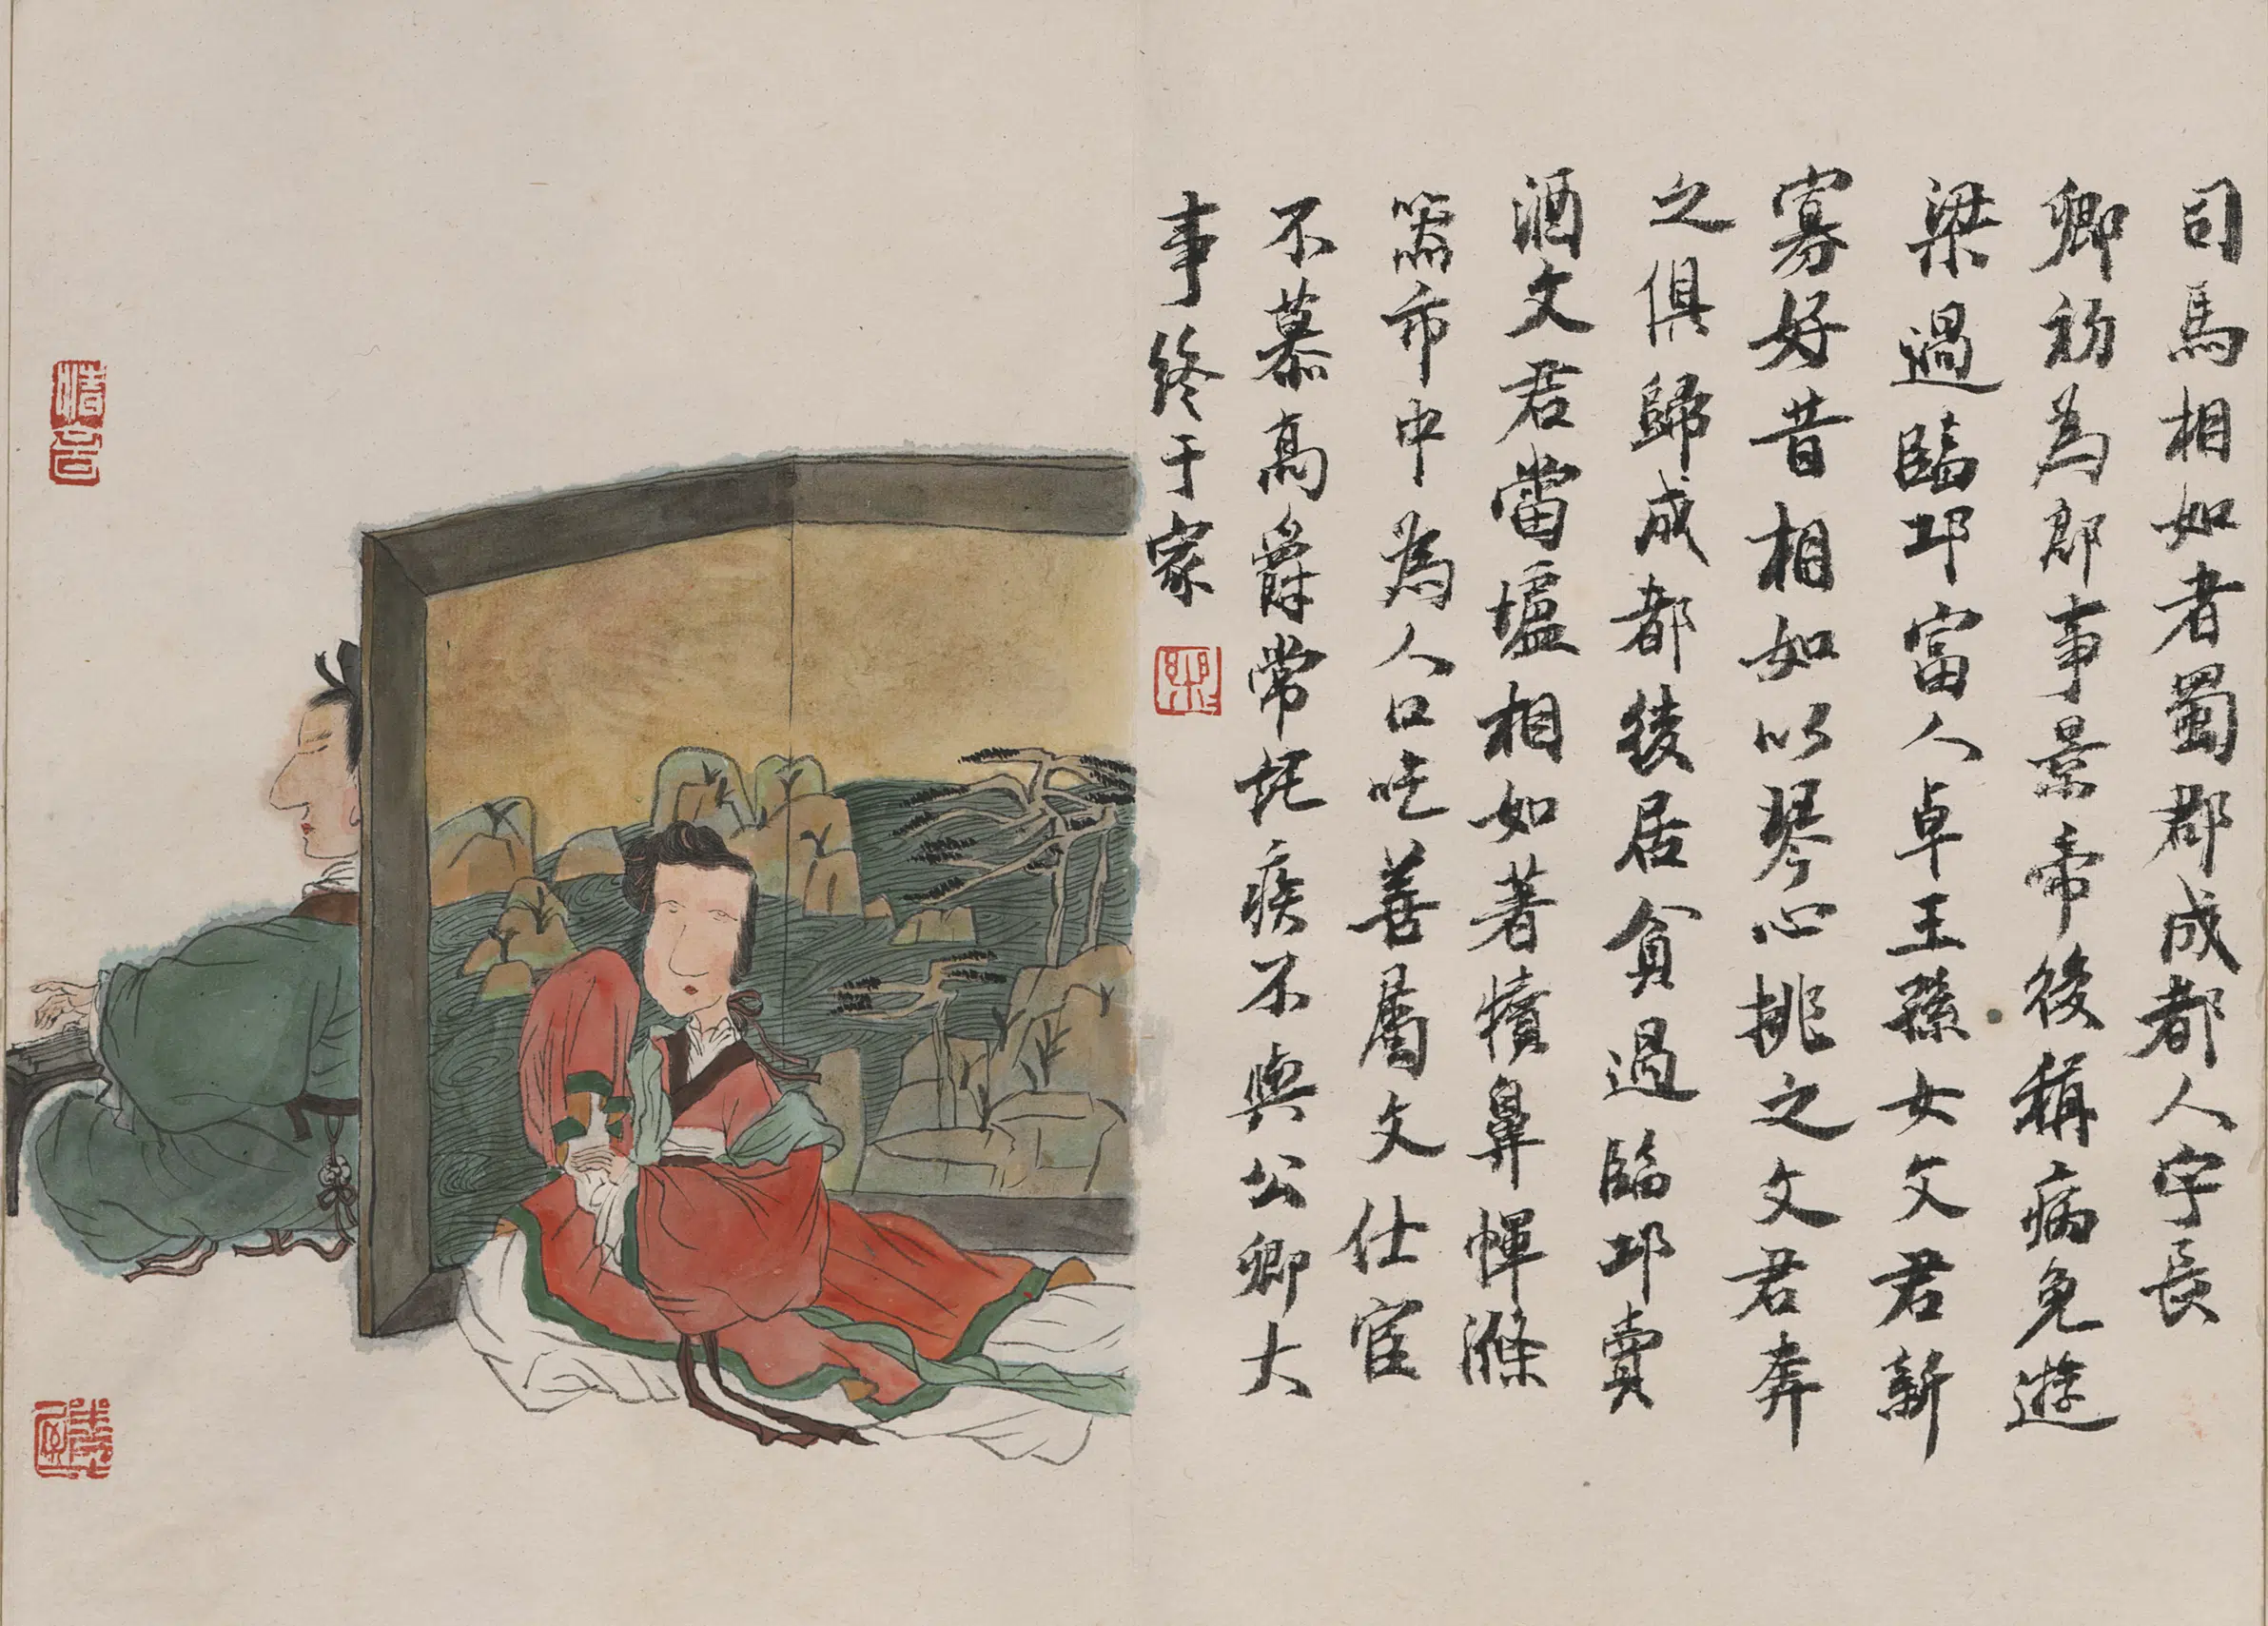 司馬相如者蜀郡成都人字長
卿初為郡事景帝後稱病免遊
梁過臨邛富人卓王孫女文君新
寡好昔相如以琴心挑之文君奔
之俱歸成都後居貧過臨邛賣
酒文君當壚相如著犢鼻幝滌
器市中為人口吃善屬文仕宦
不慕高爵常託疾不與公卿大
事終于家